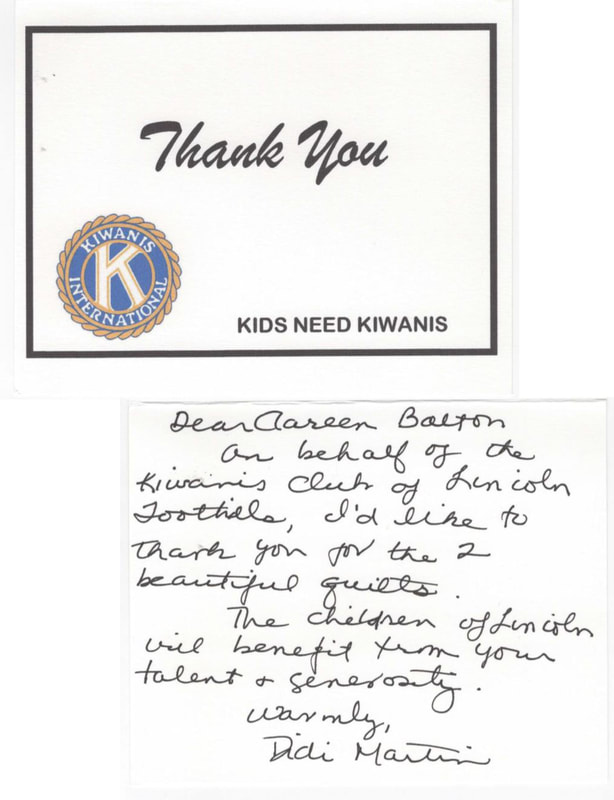 Thank You
KIWANIS
K
INTERNATIONAL
KIDS NEED KIWANIS
Dear Careen Bolton
On behalf of the
Kiwanis Club of Lincoln
Foothills, I'd like to
thank you for the 2
beautiful quilts.
The children of Lincoln
will benefit from your
talent & generosity.
Warmly,
Didi Martin